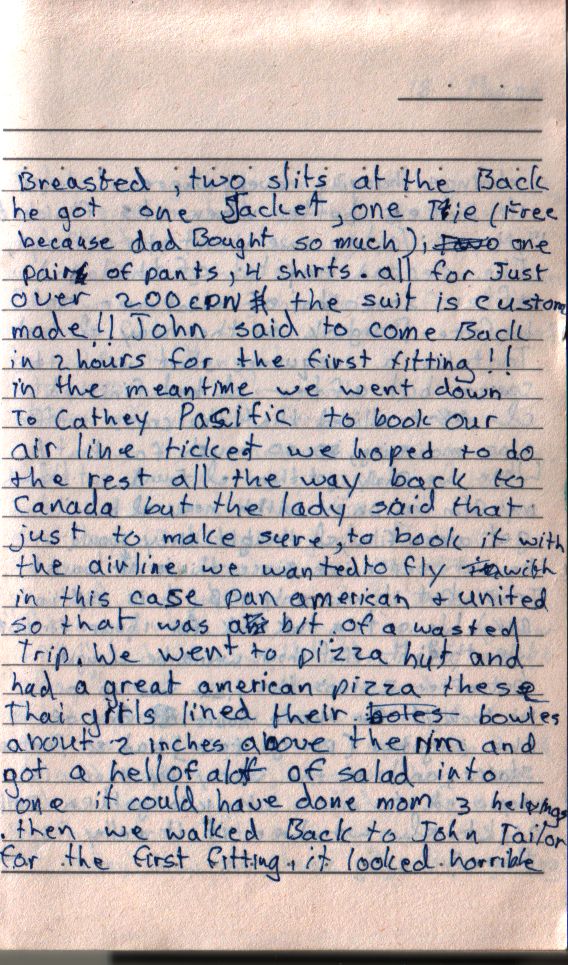 Breasted, two slits at the Back
he got one Jacket, one Tie (Free
because dad Bought so much), one
pair of pants, 4 shirts. all for Just
over 200 CDN $ the suit is custom
made!! John said to come Back
in 2 hours for the first fitting!!
in the meantime we went down
To Cathey Pasific to book our
air line ticket we hoped to do
the rest all the way back to
Canada but the lady said that
just to make sure, to book it with
the airline we wanted to fly with
in this case pan american & united
so that was a bit of a wasted
Trip. We went to pizza hut and
had a great american pizza these
Thai girls lined their boles bowles
about 2 inches above the rim and
got a hell of alot of salad into
one it could have done mom 3 helpings
. then we walked Back to John Tailor
for the first fitting. it looked horrible